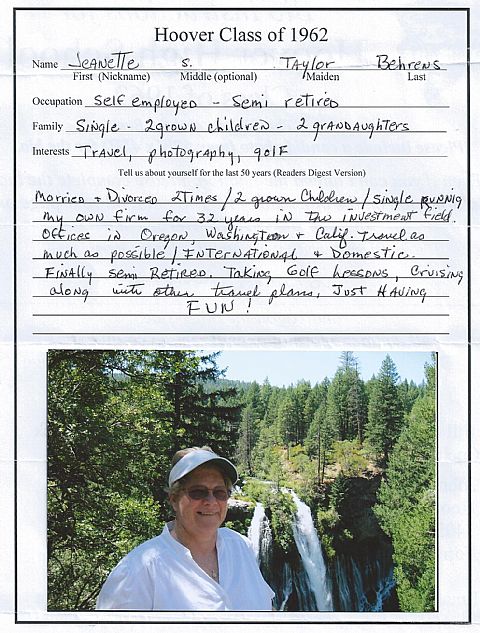 Hoover Class of 1962
Name Jeanette S. Taylor Behrens
First (Nickname) Middle (optional) Maiden Last
Occupation Self employed - Semi retired
Family Single - 2 grown children - 2 grandaughters
Interests Travel, photography, golf
Tell us about yourself for the last 50 years (Readers Digest Version)
Married + Divorced 2 Times / 2 grown Children / Single Running
my own firm for 32 years in the investment field.
Offices in Oregon, Washington + Calif. Travel as
much as possible / International + Domestic.
Finally semi Retired. Taking Golf Lessons, Cruising
along with other travel plans, Just Having
FUN!